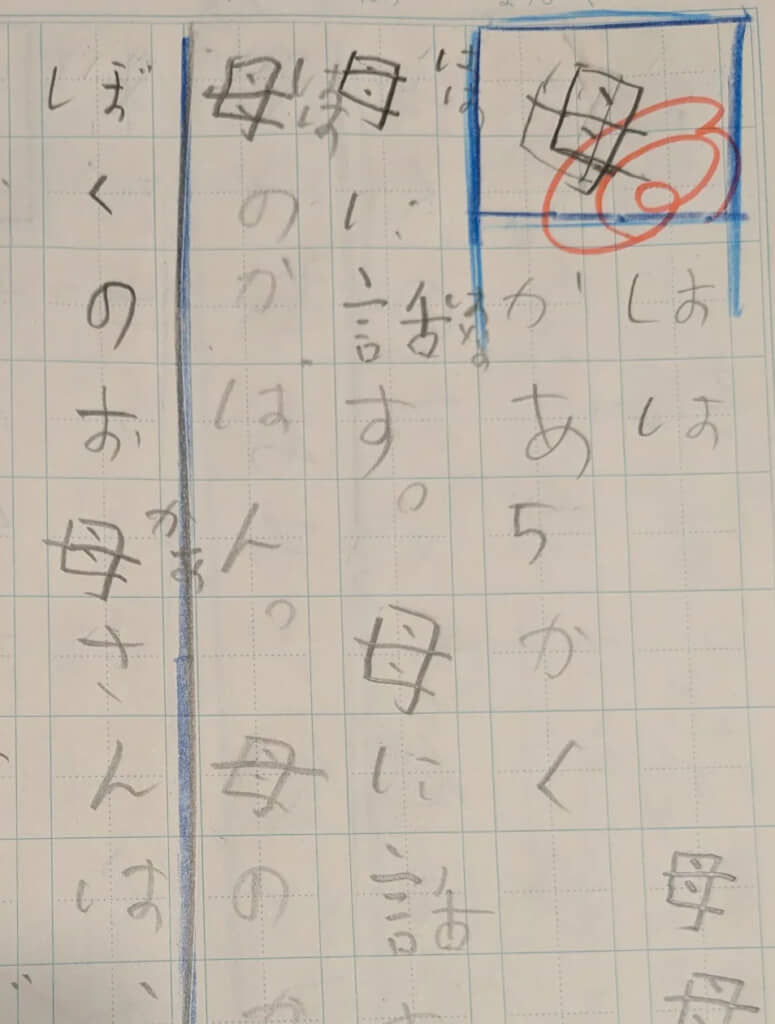 母
はは
母母
かあ
5かく
母に話す。母に話す
はは
はな
母のかばん。母のか
はは
ぼくのお母さんは、
かあ